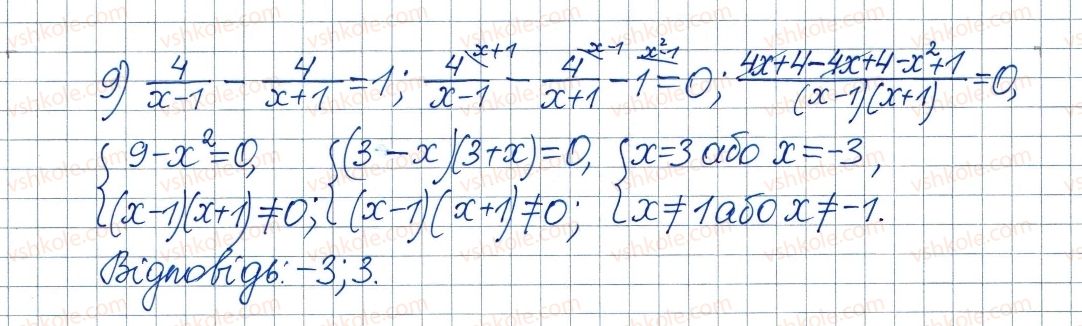 9) 4/(x-1) - 4/(x+1) = 1; 4^(x+1)/(x-1) - 4^(x-1)/(x+1) - 1^(x²-1) = 0; (4x+4-4x+4-x²+1)/((x-1)(x+1)) = 0,
{ 9-x²=0, (x-1)(x+1)≠0; { (3-x)(3+x)=0, (x-1)(x+1)≠0; { x=3 або x=-3, x≠1 або x≠-1.
Відповідь: -3; 3.
vshkole.com